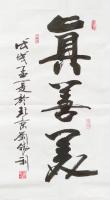 真善美
戊戌孟夏於北京劉錫利